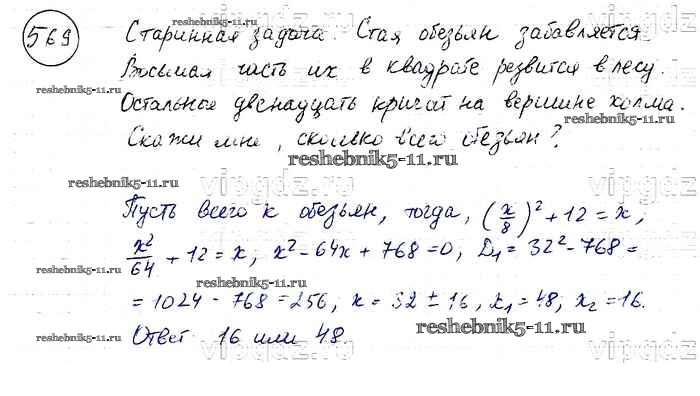 569
Старинная задача. Стая обезьян забавляется.
Восьмая часть их в квадрате резвится в лесу.
Остальные двенадцать кричат на вершине холма.
Скажи мне, сколько всего обезьян?
Пусть всего x обезьян, тогда, (x/8)² + 12 = x,
x²/64 + 12 = x; x² - 64x + 768 = 0, D₁ = 32² - 768 =
= 1024 - 768 = 256, x = 32 ± 16, x₁ = 48; x₂ = 16.
Ответ 16 или 48.
reshebnik5-11.ru
reshebnik5-11.ru
reshebnik5-11.ru
reshebnik5-11.ru
reshebnik5-11.ru
reshebnik5-11.ru
reshebnik5-11.ru
reshebnik5-11.ru
reshebnik5-11.ru
vipgdz
vipgdz
vipgdz
vipgdz
vipgdz
vipgdz